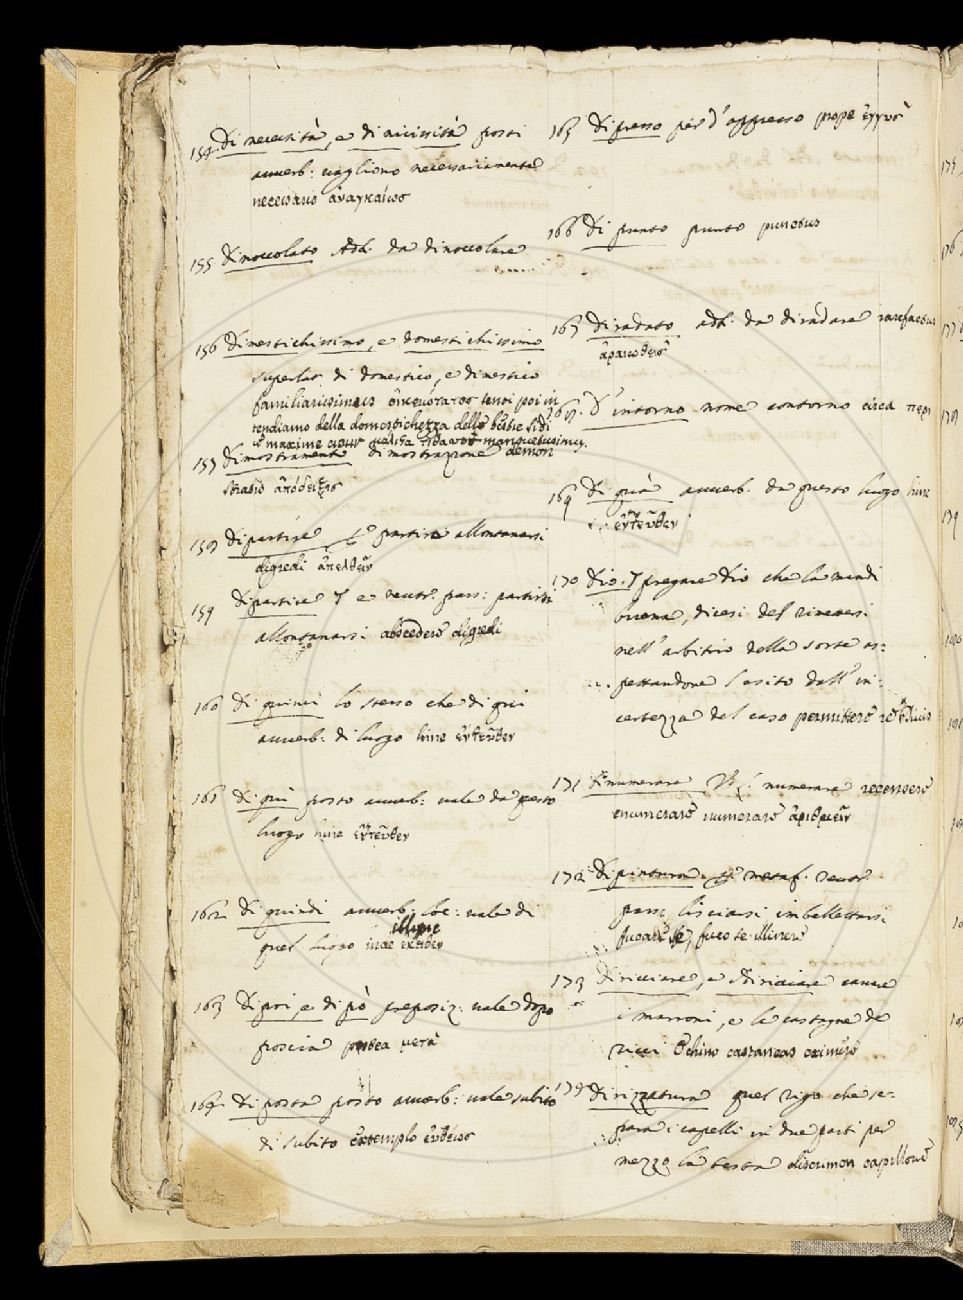 154 di necessità, e di nicissità posti
avverb: vagliono necessariamente
necessario ἀναγκαίως
155 dinoccolato Add. da dinoccolare
156 dimestichissimo, e domestichissimo
superlat. di domestico, e dimestico
familiarissimus οἰκειότατος
tendiamo della domestichezza delle bestie
maxime mansuetissimus
157 dimostramento dimostrazione demon
stratio ἀπόδειξις
158 dipartire partire allontanarsi
digredi ἀπελθεῖν
159 dipartire e neutr. pass: partirsi
allontanarsi abscedere digredi
160 di quinci lo stesso che di qui
avverb: di luogo hinc ἐντεῦθεν
161 di qui posto avverb: vale da questo
luogo hinc ἐντεῦθεν
162 di quindi avverb: loc: vale di
illinc
quel luogo inde ἐκεῖθεν
163 di poi, e di pò preposiz: vale dopo
poscia postea μετὰ
164 di posta posto avverb: vale subito
di subito extemplo εὐθέως
165 di presso per d'appresso prope ἐγγὺς
166 di punto punto punctus
167 diradato add. da diradare rarefactus
ἀραιωθεὶς
168 d'intorno nome contorno circa περι
169 di quà avverb. da questo luogo hinc
ἐντεῦθεν
170 dio. pregare dio che la mandi
buona, dicesi del rimetersi
nell'arbitrio della sorte as:
pettandone l'esito dall'in:
certezza del caso permittere
171 dinumerare numerare recensere
enumerare numerare ἀριθμεῖν
172 dipintura metaf.
pass. lisciarsi imbellettarsi
fucare se, fuco se illinere
173 diricciare, e cavare
i marroni, e le castagne da
ricci Echino castaneas eximere
174 dirizzatura quel rigo che se:
para i capelli in due parti per
mezzo la testa discrimen capillorum